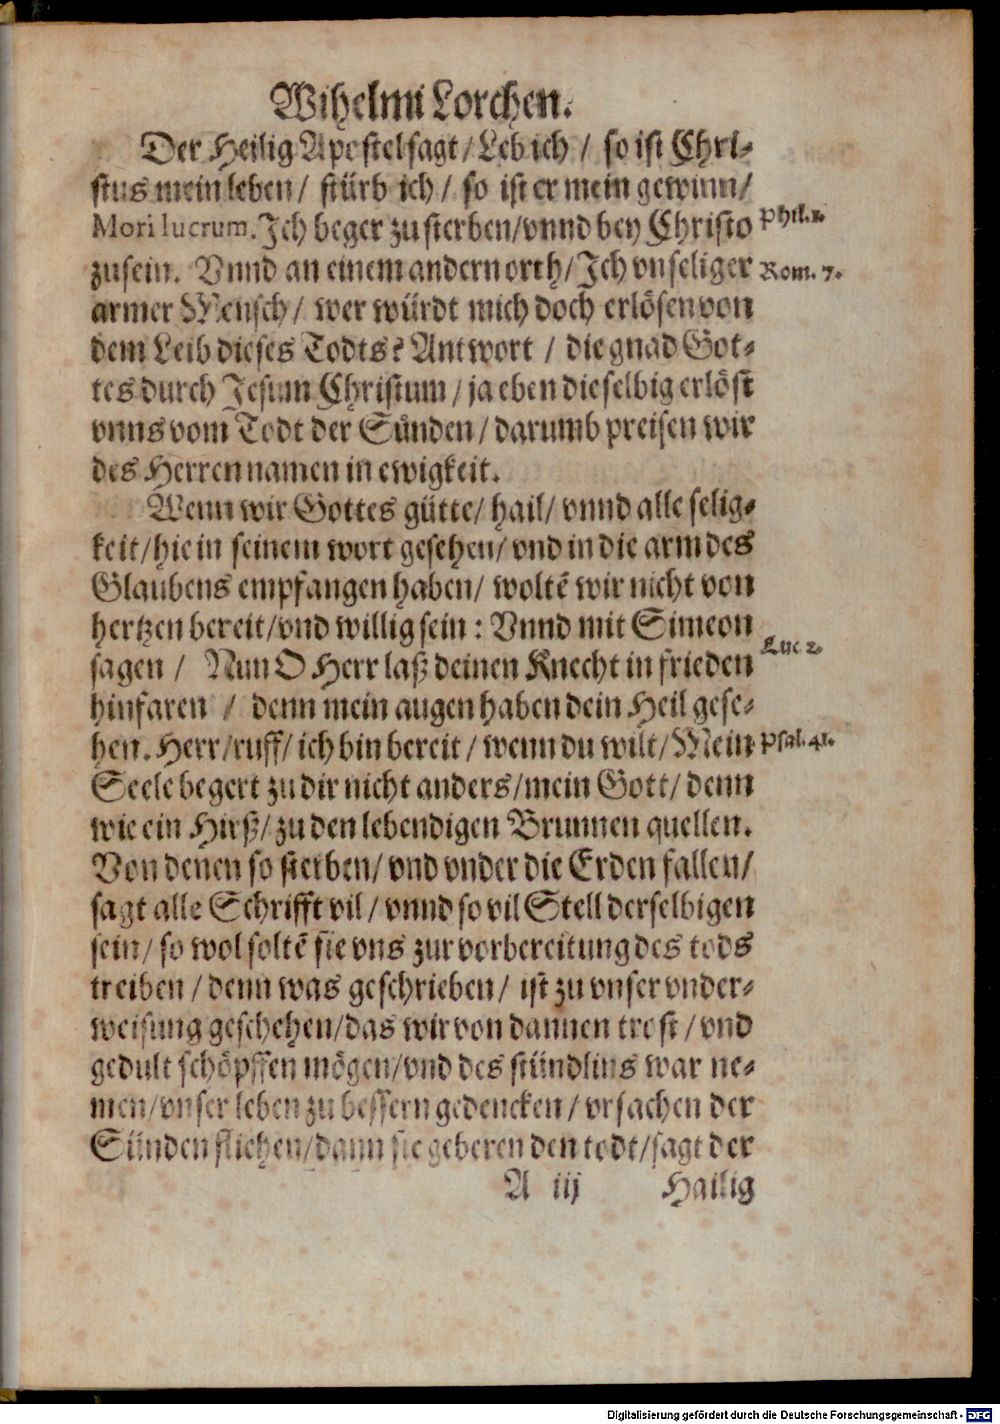 Wilhelmi Lorchen.
Der Heilig Apostel sagt / Leb ich / so ist Chri-
stus mein leben / stürb ich / so ist er mein gewinn /
Mori lucrum. Ich beger zu sterben / vnnd bey Christo
Phil. 1.
zu sein. Vnnd an einem andern orth / Ich vnseliger
Rom. 7.
armer Mensch / wer würdt mich doch erlösen von
dem Leib dieses Todts? Antwort / die gnad Got-
tes durch Jesum Christum / ja eben dieselbig erlöst
vnns vom Todt der Sünden / darumb preisen wir
des Herren namen in ewigkeit.
Wenn wir Gottes gütte / hail / vnnd alle selig-
keit / hie in seinem wort gesehen / vnd in die arm des
Glaubens empfangen haben / woltē wir nicht von
hertzen bereit / vnd willig sein : Vnnd mit Simeon
sagen / Nun O Herr laß deinen Knecht in frieden
Luc 2.
hinfaren / denn mein augen haben dein Heil gese-
hen. Herr / ruff / ich bin bereit / wenn du wilt / Mein
Psal. 41.
Seele begert zu dir nicht anders / mein Gott / denn
wie ein Hirß / zu den lebendigen Brunnen quellen.
Von denen so sterben / vnd vnder die Erden fallen /
sagt alle Schrifft vil / vnnd so vil Stell derselbigen
sein / so wol soltē sie vns zur vorbereitung des tods
treiben / denn was geschrieben / ist zu vnser vnder-
weisung geschehen / das wir von dannen trost / vnd
gedult schöpffen mögen / vnd des stündlins war ne-
men / vnser leben zu bessern gedencken / vrsachen der
Sünden fliehen / dann sie geberen den todt / sagt der
A iij Hailig
Digitalisierung gefördert durch die Deutsche Forschungsgemeinschaft - DFG